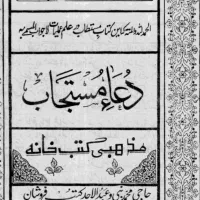 الحمد للہ کہ این کتاب مستطاب علم عملیات لاجواب المسمی بہ
دُعاءِ مُستجاب
مذہبی کتب خانہ
حاجی محمد نبی و عبد الاحد کتب فروشان